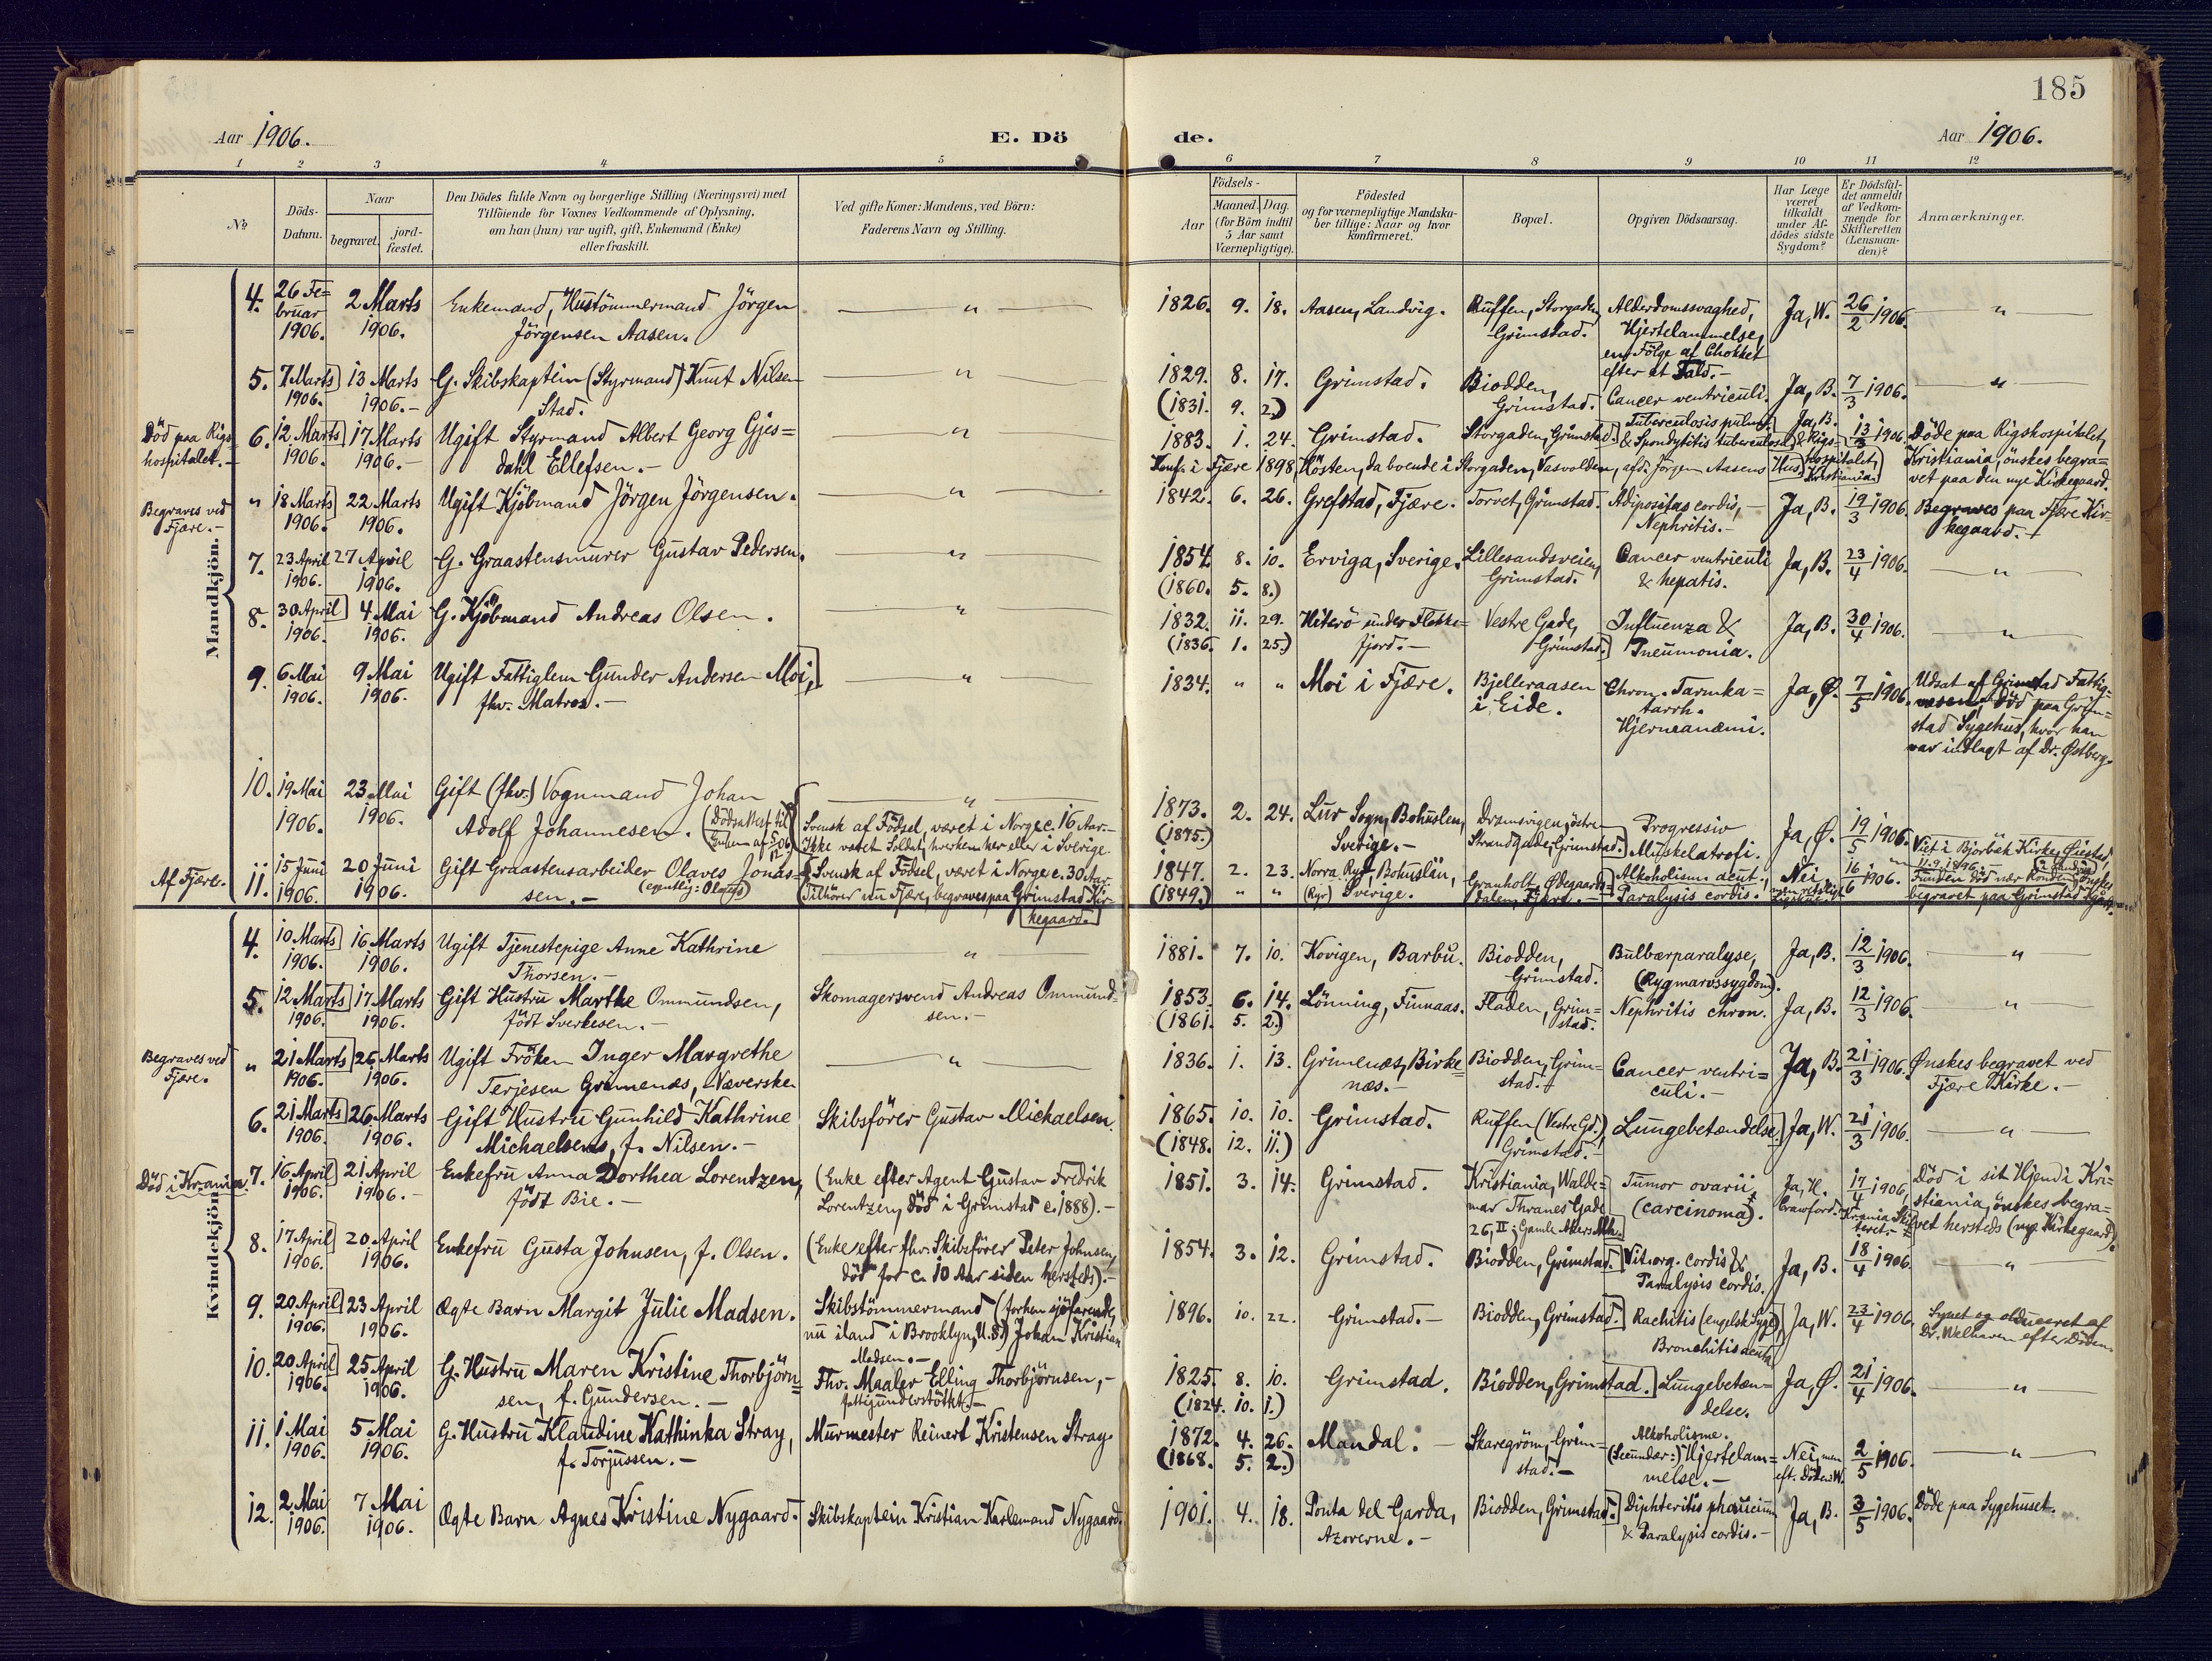 185
Aar 1906.
E. Dö de.
Aar 1906.
1 2 3 4 5 6 7 8 9 10 11 12
No
Döds-Datum.
Naar
begravet.
jord-fæstet.
Den Dödes fulde Navn og borgerlige Stilling (Næringsvei) med
Tilföiende for Voxnes Vedkommende af Oplysning,
om han (hun) var ugift, gift, Enkemand (Enke)
eller fraskilt.
Ved gifte Koner: Mandens, ved Börn:
Faderens Navn og Stilling.
Födsels-
Aar
Maaned. Dag.
(for Börn indtil
5 Aar samt
Værnepligtige).
Födested
og for værnepligtige Mandska-
ber tillige: Naar og hvor
konfirmeret.
Bopæl.
Opgiven Dödsaarsag.
Har Læge
været
tilkaldt
under Af-
dödes sidste
Sygdom?
Er Dödsfal-
det anmeldt
af Vedkom-
mende for
Skifteretten
(Lensman-
den)?
Anmærkninger.
Mandkjön.
4. 26 Fe-bruar 1906. 2 Marts 1906. Enkemand, Hustömmermand Jörgen
Jörgensen Aasen.
" 1826. 9. 18. Aasen, Landvig. Ruffen, Storgaden, Grimstad. Alderdomssvaghed,
Hjertelammelse,
en Fölge af Chokket
efter et Fald.-
Ja, W. 26/2 1906. "
5. 7 Marts 1906. 13 Marts 1906.- G. Skibskaptein (Styrmand) Knut Nilsen
Stad.
" 1829. 8. 17. (1831. 9. 2.) Grimstad. Biodden, Grimstad. Cancer ventriculi. Ja, B. 7/3 1906. "
Död paa Rigs-
hospitalet.-
6. 12 Marts 1906. 17 Marts 1906.- Ugift Styrmand Albert Georg Gjes=
dahl Ellefsen.-
" 1883. 1. 24. Grimstad. Storgaden, Grimstad. Tuberculosis pulm.
& Spondylitis tuberculosa.
Ja, B. & Rigs-hospitalet, Kristiania. 13/3 1906. Döde paa Rigshospitalet,
Kristiania, önskes begra=
vet paa den nye Kirkegaard.
Konf. i Fjære 1898, Hösten, da boende i Storgaden, Vasvolden, afd. Jörgen Aasens Hus.
Begraves ved
Fjære.-
" 18 Marts 1906. 22 Marts 1906. Ugift Kjöbmand Jörgen Jörgensen.
" 1842. 6. 26. Grefstad, Fjære. Torvet, Grimstad. Adipositas cordis,-
Nephritis.-
Ja, B. 19/3 1906. Begraves paa Fjære Kir-
kegaard.-
7. 23 April 1906. 27 April 1906. G. Graastensmurer Gustav Pedersen.
" 1854. 8. 10. (1860. 5. 8.) Erviga, Sverige. Lillesandsveien, Grimstad. Cancer ventriculi
& hepatis.
Ja, B. 23/4 1906. "
8. 30 April 1906. 4 Mai 1906. G. Kjöbmand Andreas Olsen.
" 1832. 11. 29. (1836. 1. 25.) Hiterö under Flekke=
fjord.-
Vestre Gade, Grimstad. Influenza &
Pneumonia.
Ja, B. 30/4 1906. "
9. 6 Mai 1906. 9 Mai 1906. Ugift Fattiglem Gunder Andersen Moi,
fhv. Matros.-
" 1834. " " Moi i Fjære. Bjelleraasen
i Eide.
Chron. Tarmka=
tarrh.
Hjerneanæmi.
Ja, Ø. 7/5 1906. Udsat af Grimstad Fattig=
væsen, Död paa Grim=
stad Sygehus, hvor han
var indlagt af Dr. Østberg.
10. 19 Mai 1906. 23 Mai 1906. Gift (fhv.) Vognmand Johan
Adolf Johannesen. (Dödsattest til Enken af 5/12 06)
"
Svensk af Födsel, været i Norge c. 16 Aar.-
Ikke været Soldat, hverken her eller i Sverige.
1873. 2. 24. (1875.) Lur Sogn, Bohuslen,
Sverige.-
Dramsvigen, östre
Strandgade, Grimstad.
Progressiv
Muskelatrofi.
Ja, Ø. 19/5 1906. Viet i Bjorbæk Kirke, Øiestad,
11-9-1896.-
Af Fjære.
11. 15 Juni 1906. 20 Juni 1906. Gift Graastensarbeider Olaves Jonas-
sen.- (egentlig: Olaus)
Svensk af Födsel, været i Norge c. 30 Aar.
Tilhörer nu Fjære, begraves paa Grimstad Kir-
kegaard.
1847. 2. 23. (1849.) " " Norra Ryr, Bohuslän,
(Ryr) Sverige.
Granholt, Ødegaards-
dalen, Fjære.-
Alkoholismus acut.,
Paralysis cordis.
Nei, 16/6 1906. Funden död nær Ronden, önskes
begravet paa Grimstad Kgård.
Kvindekjön.
4. 10 Marts 1906. 16 Marts 1906. Ugift Tjenestepige Anne Kathrine
Thorsen.-
" 1881. 7. 10. Kovigen, Barbu. Biodden, Grimstad. Bulbærparalyse,
(Rygmarvssygdom).
Ja, B. 12/3 1906. "
5. 12 Marts 1906. 17 Marts 1906. Gift Hustru Marthe Ommundsen,
födt Sverkesen.-
Skomagersvend Andreas Ommund-
sen.-
1853. 6. 14. (1861. 5. 2.) Lönning, Finnaas. Fladen, Grim=
stad.
Nephritis chron. Ja, B. 12/3 1906. "
Begraves ved
Fjære.
" 21 Marts 1906. 26 Marts 1906. Ugift Fröken Inger Margrethe
Terjesen Grimenæs, Væverske.
" 1836. 1. 13. Grimenæs, Birke=
næs.-
Biodden, Grim=
stad.-
Cancer ventri=
culi.-
Ja, B. 21/3 1906. Ønskes begravet ved
Fjære Kirke.-
6. 21 Marts 1906. 26 Marts 1906. Gift Hustru Gunhild Kathrine
Michaelsens, f. Nilsen.-
Skibsförer Gustav Michaelsen.
1865. 10. 10. (1848. 12. 11.) Grimstad. Ruffen (Vestre Gd.),
Grimstad.-
Lungebetændelse. Ja, W. 21/3 1906. "
Död i Kr.ania.
7. 16 April 1906. 21 April 1906.- Enkefru Anna Dorthea Lorentzen,
födt Bie.-
(Enke efter Agent Gustav Fredrik
Lorentzen, död i Grimstad c. 1888).-
1851. 3. 14. Grimstad. Kristiania, Walde=
mar Thranes Gade
26, II; Gamle Akers
Tumor ovarii,
(carcinoma).
Ja, H.
Crawford.
17/4 1906, Död i sit Hjem i Kri=
stiania, önskes begra=
vet hersteds (nye Kirkegaard).
8. 17 April 1906. 20 April 1906. Enkefru Gusta Johnsen, f. Olsen.
(Enke efter fhv. Skibsförer Peter Johnsen,
död for c. 10 Aar siden hersteds).-
1854. 3. 12. Grimstad. Biodden, Grimstad. Vit. org. cordis &
Paralysis cordis.
Ja, B. 18/4 1906. "
9. 20 April 1906. 23 April 1906. Ægte Barn Margit Julie Madsen.
Skibstömmermand (forhen sjöfarende,
nu iland i Brooklyn, U.S.) Johan Kristian
Madsen.-
1896. 10. 22. Grimstad.- Biodden, Grimstad. Rachitis (engelsk Syge),
Bronchitis acuta
Ja, W. 23/4 1906. Synet og obduceret af
Dr. Welhaven efter Döden.
10. 20 April 1906. 25 April 1906. G. Hustru Maren Kristine Thorbjörn=
sen, f. Gundersen.-
Fhv. Maaler Elling Thorbjörnsen,-
fattigunderstöttet.-
1825. 8. 10. (1824. 10. 1.) Grimstad. Biodden, Grimstad. Lungebetæn=
delse.
Ja, Ø. 21/4 1906. "
11. 1 Mai 1906. 5 Mai 1906. G. Hustru Klaudine Kathinka Stray,
f. Torjussen.-
Murmester Reinert Kristensen Stray.
1872. 4. 26. (1868. 5. 2.) Mandal.- Skaregröm, Grim=
stad.-
Alkoholisme.
(Secundær:) Hjertelam=
melse.-
Nei, men
eft. Döden: W.
2/5 1906. "
12. 2 Mai 1906. 7 Mai 1906. Ægte Barn Agnes Kristine Nygaard.
Skibskaptein Kristian Karlemand Nygaard.
1901. 4. 18. Ponta del Garda,
Azorerne.-
Biodden, Grimstad. Diphteritis phaucium
& Paralysis cordis.-
Ja, B. 3/5 1906. Döde paa Sygehuset.